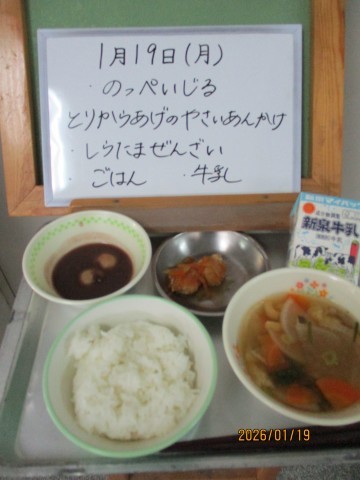 1月19日(月)
・のっぺいじる
とりからあげのやさいあんかけ
・しらたまぜんざい
・ごはん ・牛乳
新泉牛乳
2026/01/19